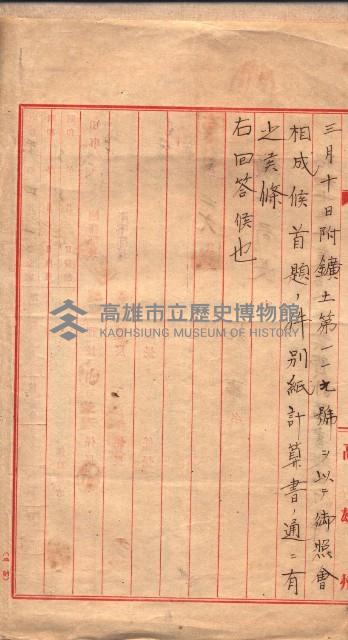 三月十日附鑛土第一一九號ヲ以テ御照會
相成候首題ノ件別紙計算書ノ通ニ有
之候條
右回答候也
高雄州
高雄市立歷史博物館
KAOHSIUNG MUSEUM OF HISTORY